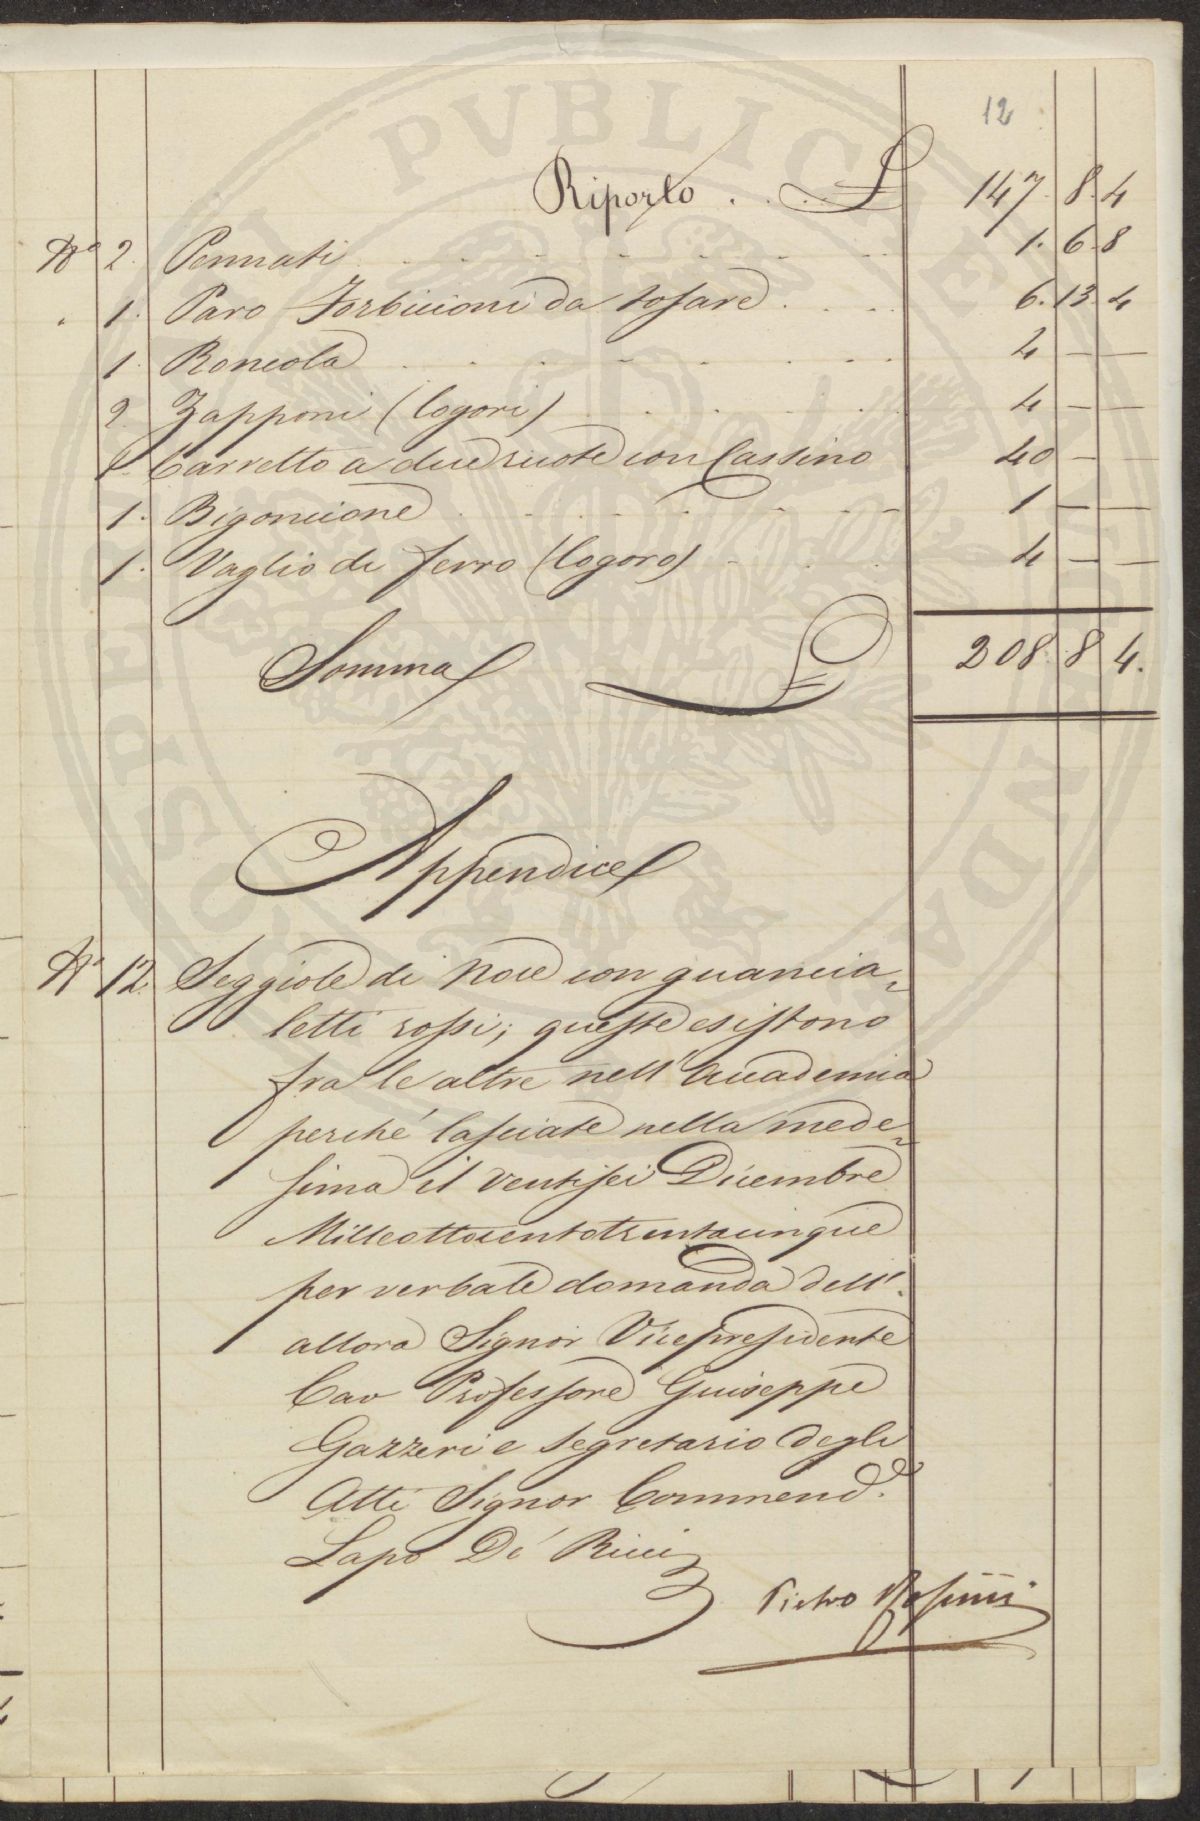 12
Riporto . . . £ 147. 8. 4
N.° 2. Pennati 1. 6. 8
" 1. Paro Forbicioni da tosare 6. 13. 4
1. Roncola 4 — —
2. Zapponi (logori) 4 — —
1. Carretto a due ruote con Cassino 40 — —
1. Bigoncione 1 — —
1. Vaglio di ferro (logoro) 4 — —
Somma £ 208. 8. 4.
Appendice
N.° 12. Seggiole di Noce con guancia-
letti rossi; queste esistono
fra le altre nell'Accademia
perché lasciate nella mede-
sima il ventisei Dicembre
Milleottocentotrentacinque
per verbale domanda dell'
allora Signor Vicepresidente
Cav Professore Guiseppe
Gazzeri e Segretario degli
Atti Signor Commend.e
Lapo De' Ricci
Pietro